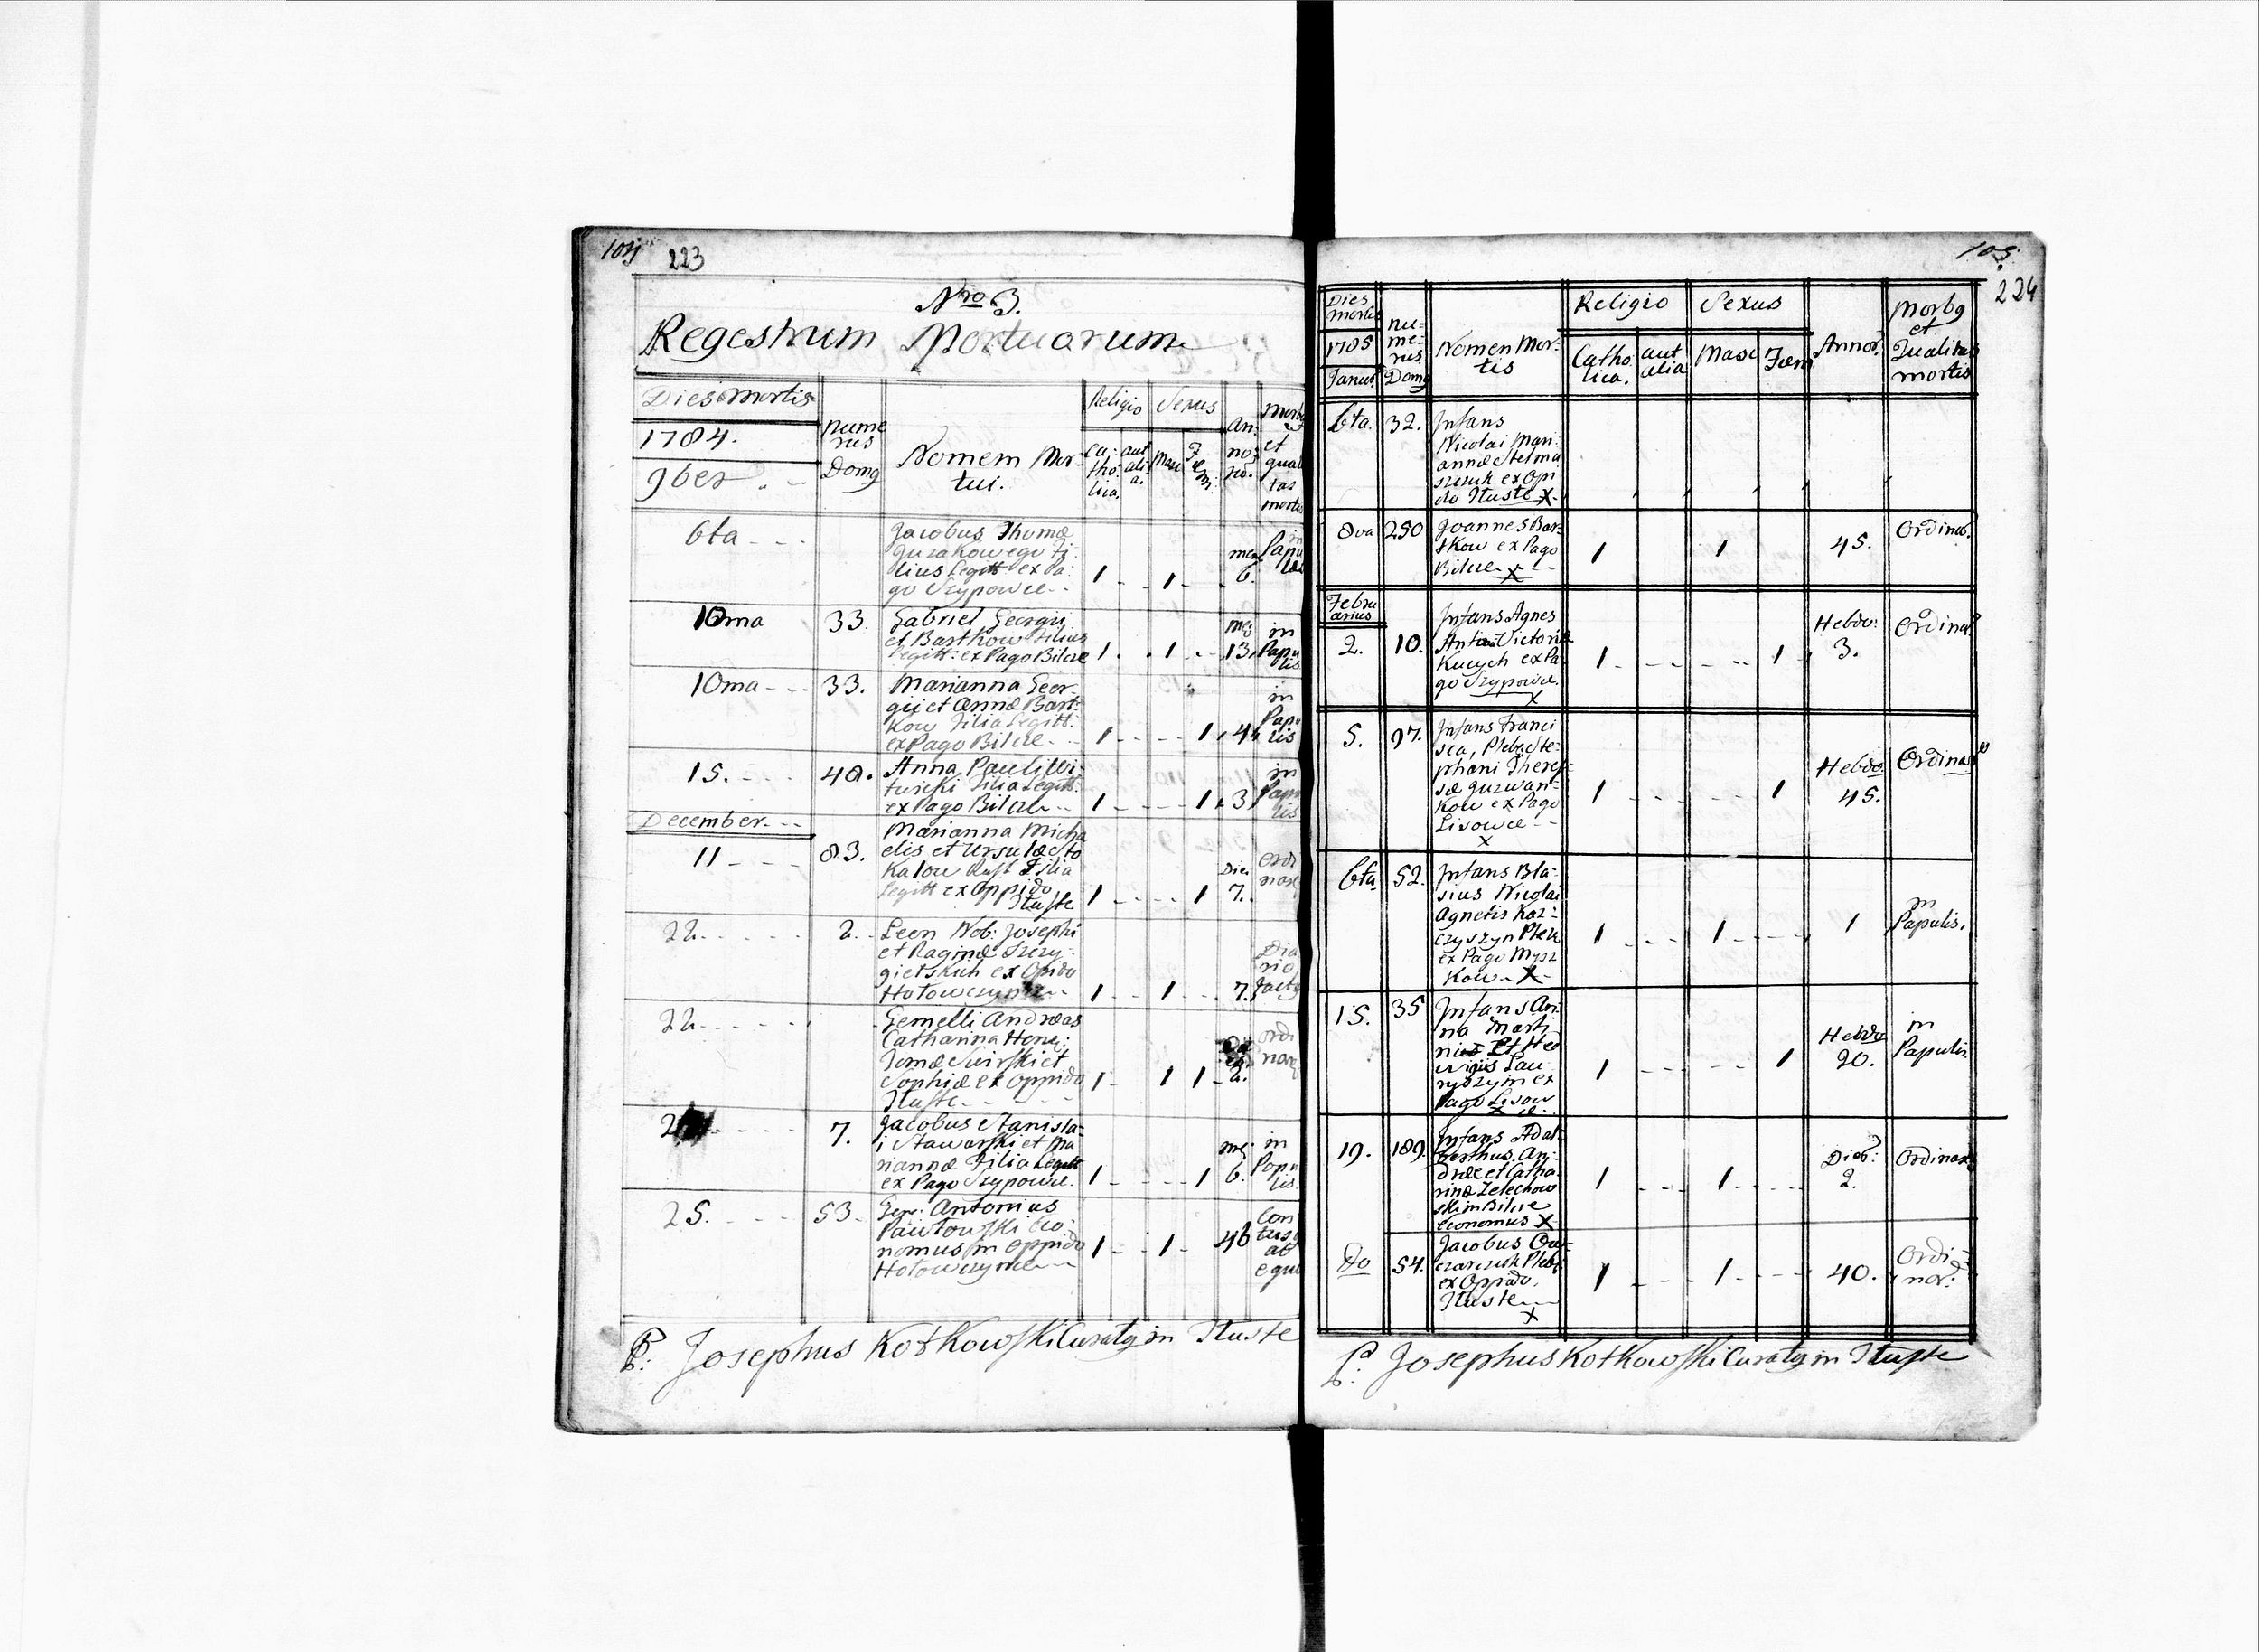 104 223
Nro 3.
Regestrum Mortuarum
Dies Mortis
1784.
9ber. -
nume
rus
Domg
Nomem Mor-
tui.
Religio
Sexus
Ca-
tho
lica.
aut
ali
a.
Masc
Fem:
an:
no:
ro.
Morbg
et
quali
tas
mortis
6ta - - -
Jacobus Thomæ
Fi:
lius Legitt ex Pa:
go Szypowce - -
1 - - 1 - -
men
6.
in
Papu
lis
10ma
33.
Gabriel Georgii
et Bartkow Filius
Legitt: ex Pago Bilcze
1 . . 1 . -
13.
in
Papu
lis
10ma - - -
33.
Marianna Geor-
gii et Annæ Bart-
kow Filia Legitt:
ex Pago Bilcze - -
1 - - - - 1
4
in
Papu
lis
15. - - - -
40.
Anna Pauli Wi-
Filia Legitt:
ex Pago Bilcze - -
1 - - - - 1
3
in
Papu
lis
December - - -
11 - - - -
83.
Marianna Micha
elis et Ursulæ Sto
kalow Filia
Legitt ex Oppido
Tluste
1 - - - - 1
Dies
7.
Ordi
nar
22. - - - -
2. -
Leon Nob: Josephi
et Raginæ
ex Opido
Hołowczynce - -
1 - - 1 - - -
7.
22. - - - -
Gemelli Andreas
Catharina
Swirski et
Sophiæ ex Oppido
Tluste - - - -
1 - 1 1 -
2.
ordi
nar
2
7.
Jacobus Stanisla-
i Stawarski et Ma
riannæ Filia Legitt
ex Pago Szypowce.
1 - - - - 1
6.
in
Papu
lis
25. - - - -
53 -
Gen: Antonius
Pawłowski Eco-
nomus in Oppido
Hołowczynce - -
1 - - 1 -
46
Con
tusg
ab
equo
P: Josephus Kotkowski Curatg in Tluste
105.
224
Dies
mortis
1785
Janua:
nu=
me=
rus
Domg
Nomen Mor-
tis
Religio
Catho
lica.
aut
alia
Sexus
Masc
Fæm
Annor:
Morbg
et
Qualitas
mortis
6ta.
32.
Infans
Nicolai Mari-
annæ Stelma
szczuk ex Opi
do Tluste X
8va
250
Joannes Bar-
tkow ex Pago
Bilcze - - -
X
1
1
45.
Ordinar:
Febru
arius
2.
10.
Infans Agnes
Victoriæ
ex Pa-
go Szypowce.
X
1 - - - - - - - 1
Hebdo:
3.
Ordinar:
5.
97.
Infans Franci
sca, Pleb: Ste-
phani There-
sæ
kow ex Pago
Lisowce - -
X
1 - - - - - 1
Hebdo:
45.
Ordinar
6ta
52.
Infans Bla-
sius Nicolai
Agnetis Kar-
czyszyn Pleb
ex Pago Mysz
kow - X -
1 - - - 1 - - - -
1
in
Papulis.
15.
35
Infans An-
na Marti
nis Et Hed
vigis Lau
ryszyn ex
Pago Lisow
X ce.
1 - - - - - 1
Hebdo
20.
in
Papulis.
19.
189.
Infans Adal-
berthus An-
dreæ et Catha-
rinæ Zelechow
ski in Bilcze
Economus X
1 - - - 1 - - - -
Dier:
2.
Ordinar:
do
54.
Jacobus Ow-
czarczuk Pleb:
ex Oppido
Tluste - -
X
1 - - - 1 - - - -
40.
Ordi-
nar:
P: Josephus Kotkowski Curatg in Tluste